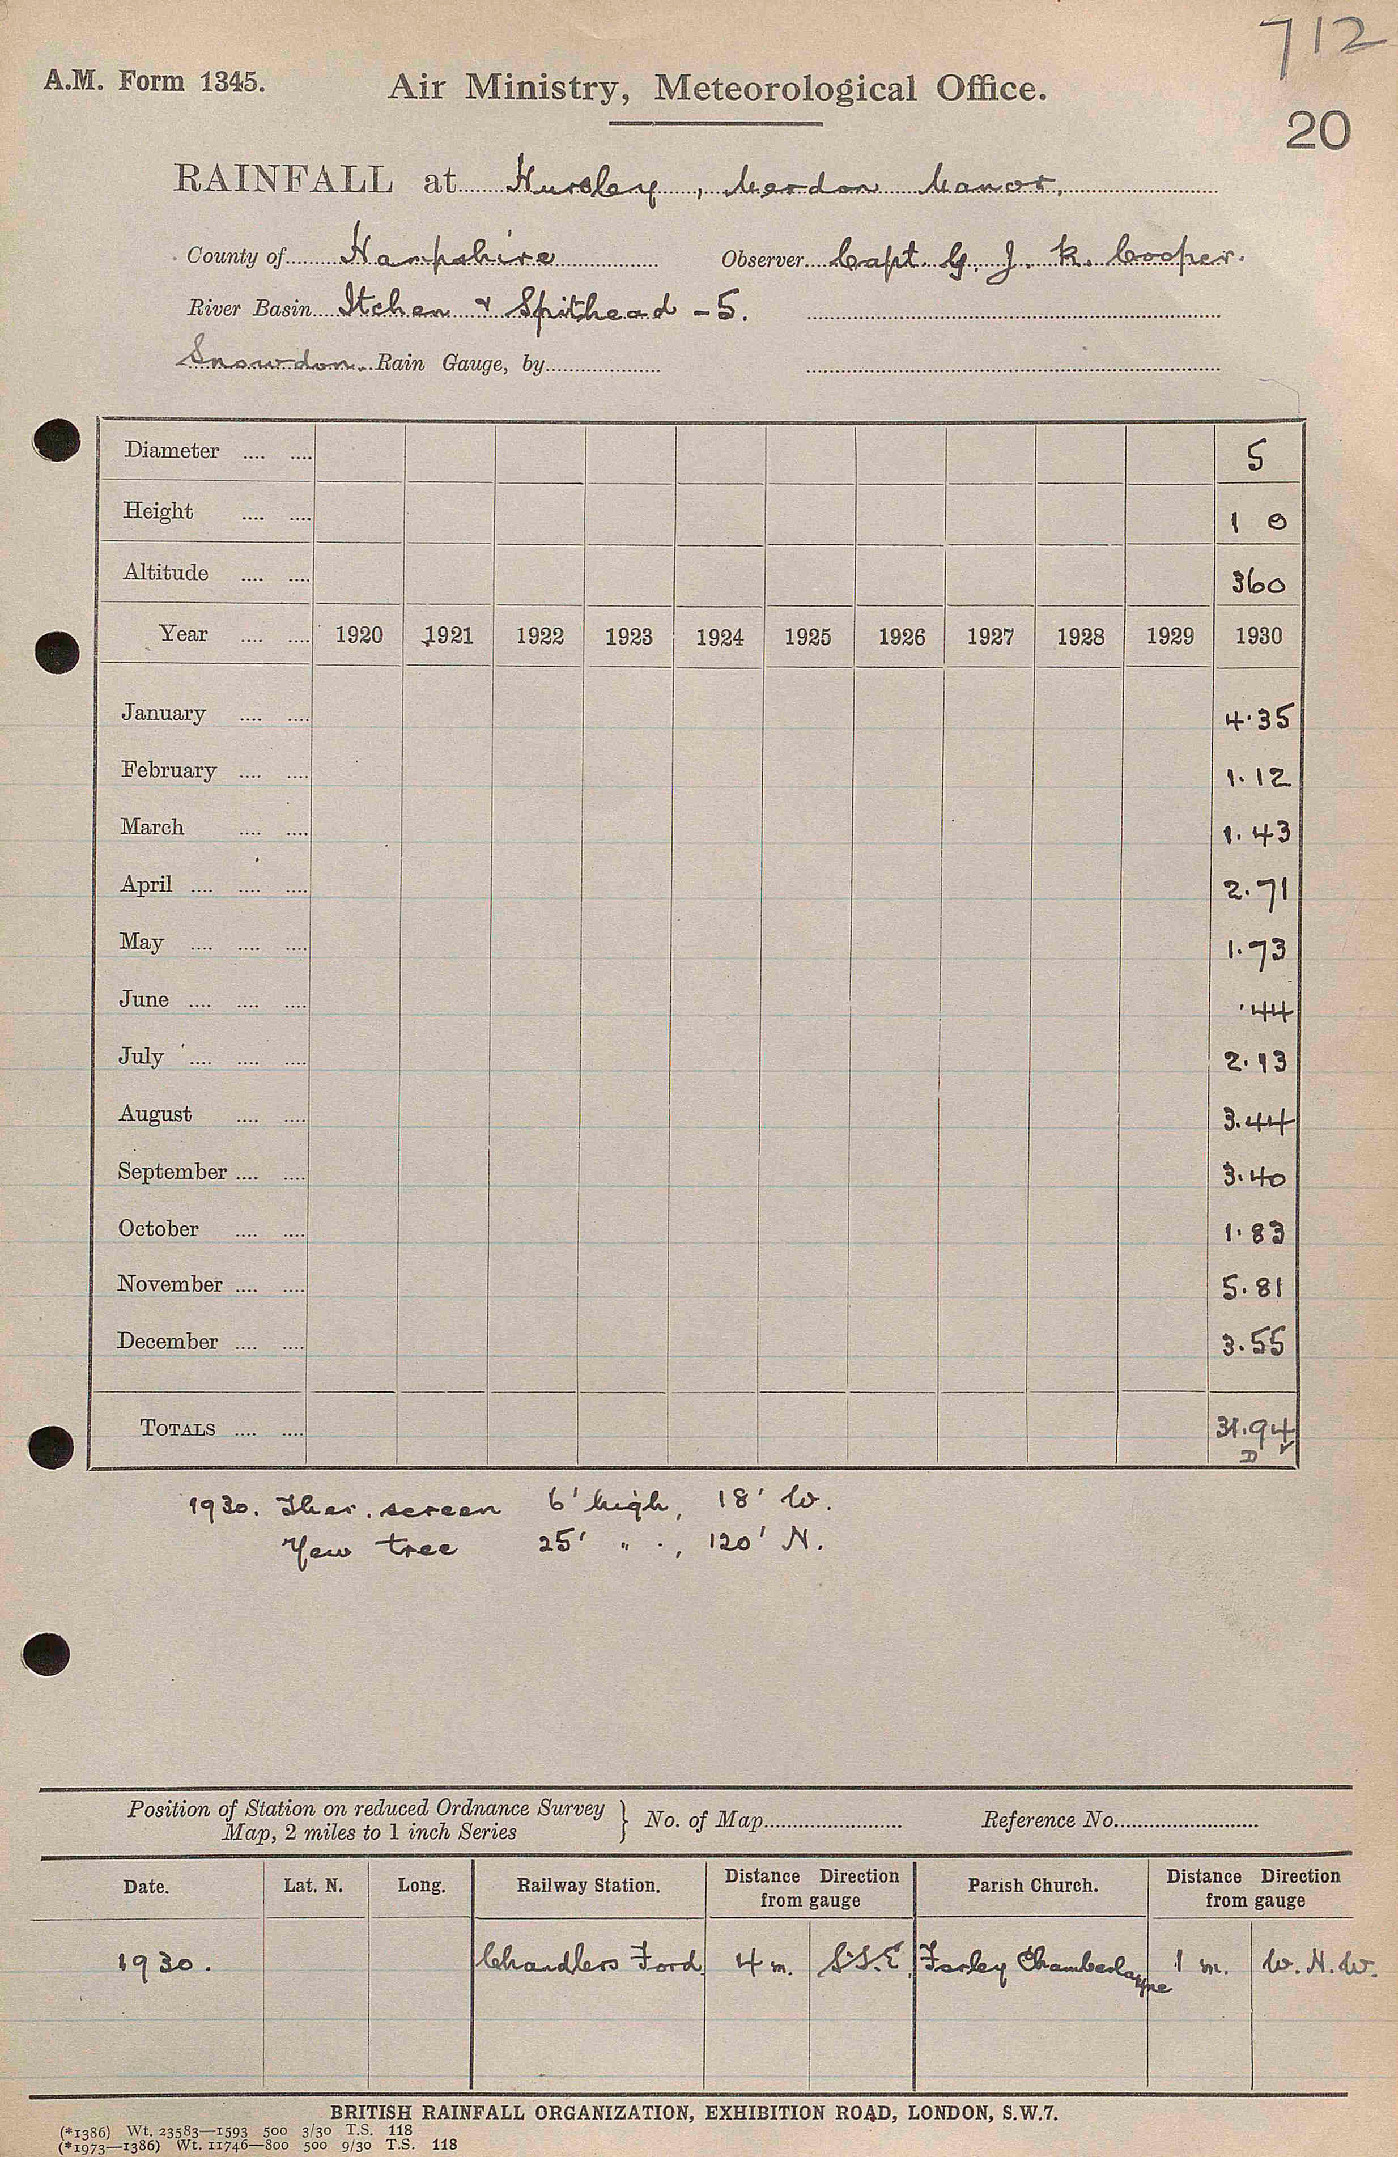 712
A.M. Form 1345. Air Ministry, Meteorological Office.
20
RAINFALL at Hursley, Merdon Manor,
County of Hampshire Observer Capt G. J. R. Cooper.
River Basin Itchen & Spithead - 5.
Snowdon Rain Gauge, by
Diameter .... .... 5
Height .... .... 1 0
Altitude .... .... 360
Year .... .... 1920 1921 1922 1923 1924 1925 1926 1927 1928 1929 1930
January .... .... 4.35
February .... .... 1.12
March .... .... 1.43
April .... .... .... 2.71
May .... .... .... 1.73
June .... .... .... .44
July .... .... .... 2.13
August .... .... 3.44
September .... .... 3.40
October .... .... 1.83
November .... .... 5.81
December .... .... 3.55
TOTALS .... .... 31.94
D
1930. Ther. screen 6' high, 18' W.
Yew tree 25' " ., 120' N.
Position of Station on reduced Ordnance Survey
Map, 2 miles to 1 inch Series } No. of Map Reference No.
Date. Lat. N. Long. Railway Station. Distance Direction from gauge Parish Church. Distance Direction from gauge
1930. Chandlers Ford 4 m. S.S.E. Farley Chamberlayne 1 m. W.N.W.
BRITISH RAINFALL ORGANIZATION, EXHIBITION ROAD, LONDON, S.W.7.
(*1386) Wt. 23583—1593 500 3/30 T.S. 118
(*1973—1386) Wt. 11746—800 500 9/30 T.S. 118